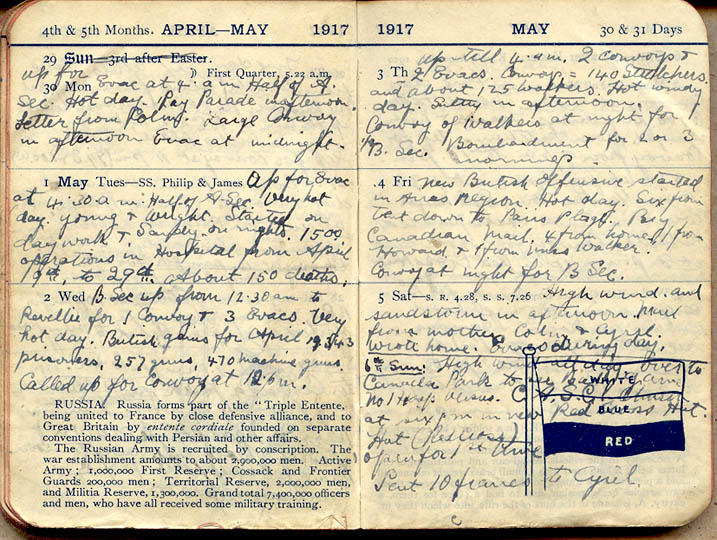 4th & 5th Months. APRIL—MAY 1917
29 Sun—3rd after Easter.
up for ☽ First Quarter, 5.22 a.m.
30 Mon Evac at 4. a.m Half of A.
Sec. Hot day. Pay Parade in afternoon.
Letter from Large Convoy
in afternoon Evac at midnight.
1 May Tues—SS. Philip & James Up for Evac
at 4.30 a.m. Half of A Sec. Very hot
day. Young & Wright. Started on
day work & on nights. 1500
operations in Hospital from April
9th. to 29th. About 150 deaths.
2 Wed B. Sec up from 12.30 am to
Revellie for 1 Convoy & 3 Evacs. Very
hot day. British gains for April
prisoners, 257 guns, 470 machine guns.
Called up for Convoy at
RUSSIA. Russia forms part of the "Triple Entente,
being united to France by close defensive alliance, and to
Great Britain by entente cordiale founded on separate
conventions dealing with Persian and other affairs.
The Russian Army is recruited by conscription. The
war establishment amounts to about 2,900,000 men. Active
Army; 1,000,000 First Reserve; Cossack and Frontier
Guards 200,000 men; Territorial Reserve, 2,000,000 men,
and Militia Reserve, 1,300,000. Grand total 7,400,000 officers
and men, who have all received some military training.
1917 MAY 30 & 31 Days
up till 4. a.m. 2 convoys &
3 Th 2 Evacs. Convoys = 140 Stretchers.
and about 125 walkers. Hot windy
day. in afternoon.
Convoy of walkers at night for
B. Sec. Bombardment for 2 or 3
mornings.
4 Fri New British Offensive started
in Arras Region. Hot day. Six from
tent down to Paris Plage. Big
Canadian Mail. 4 from home, 1 from
Howard & 1 from Miss Walker.
Convoy at night for B Sec.
5 Sat—S. R. 4.28, S. S. 7.26 High wind. and
sandstorm in afternoon. Mail
from mother, & Cyril.
Wrote home. during day.
6th Sun: High wind all day. over to
Canada Park to see Baseball game
No 1 Hosp. versus.
at six pm in new Red Cross Hut.
Hut (Red Cross)
open for 1st time
Sent 10 francs to Cyril.
WHITE
BLUE
RED